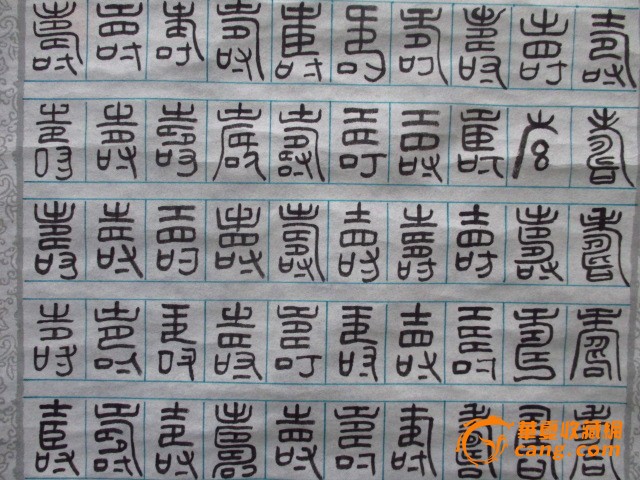 壽壽壽壽壽壽壽壽壽壽
壽壽壽壽壽壽壽壽壽壽
壽壽壽壽壽壽壽壽壽壽
壽壽壽壽壽壽壽壽壽壽
壽壽壽壽壽壽壽壽壽壽
華夏收藏網
cang.com